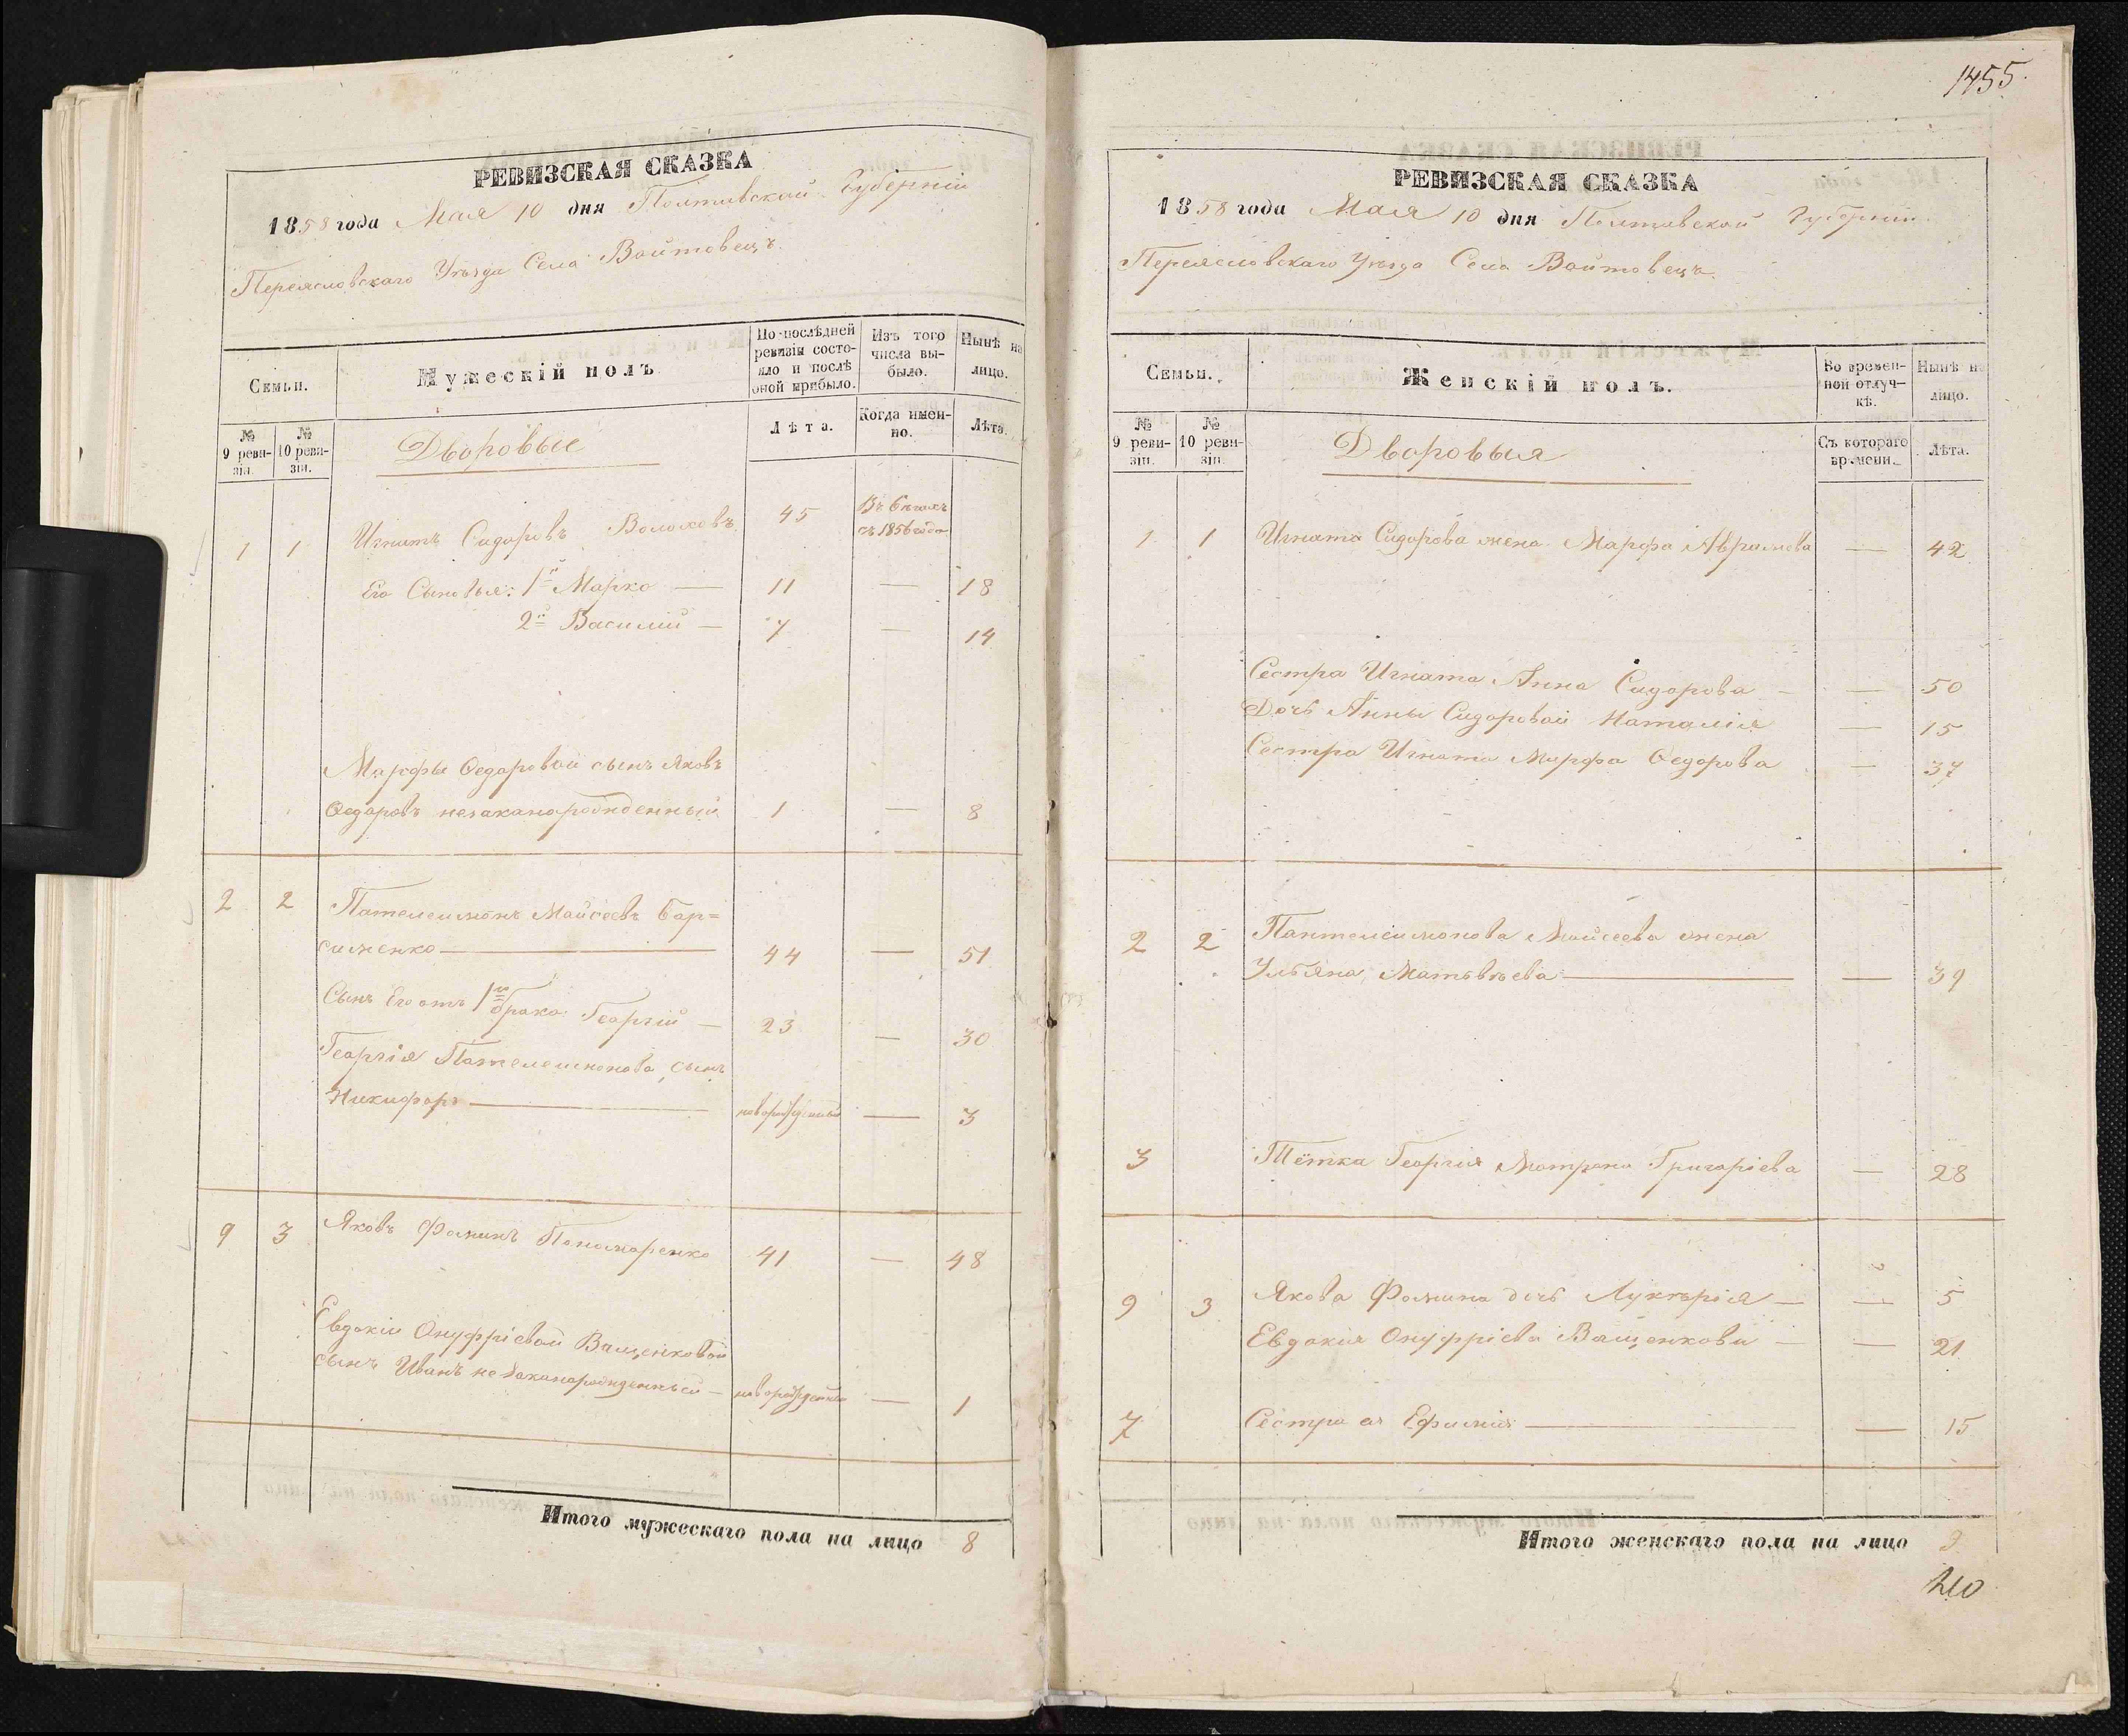 РЕВИЗСКАЯ СКАЗКА
1858 года Мая 10 дня Полтавской Губерніи
Переясловскаго Уѣзда Села Войтовецъ.
Семьи.
Мужескій полъ
По послѣдней ревизіи состояло и послѣ оной прибыло.
Изъ того числа выбыло.
Нынѣ на лицо.
№ 9 ревизіи.
№ 10 ревизіи.
Дворовые
Лѣта.
Когда именно.
Лѣта.
1 1 Игнатъ Сидоровъ 45 Въ бѣгахъ съ 1856 года
Его Сыновья: 1й Марко — 11 — 18
2й Василій — 7 — 14
Марфы Ѳедоровой сынъ Яковъ
Ѳедоровъ незаконорожденный 1 — 8
2 2 Пателеимонъ Мойсеевъ Бар=
сименко — 44 — 51
Сынъ Его отъ 1го брака Георгій — 23 — 30
Георгія Пателеимонова сынъ
Никифоръ — новорожденный — 3
9 3 Яковъ Фоминъ Пономаренко 41 — 48
Евдокіи Онуфріевой Ващенковой
сынъ Иванъ незаконорожденный — новорожденный — 1
Итого мужескаго пола на лицо 8
1455.
РЕВИЗСКАЯ СКАЗКА
1858 года Мая 10 дня Полтавской Губерніи
Переясловскаго Уѣзда Села Войтовецъ.
Семьи.
Женскій полъ.
Во временной отлучкѣ.
Нынѣ на лицо.
№ 9 ревизіи.
№ 10 ревизіи.
Дворовыя
Съ котораго времени.
Лѣта.
1 1 Игната Сидорова жена Марфа Аврамова — 42
Сестра Игната Анна Сидорова — — 50
Дочь Анны Сидоровой Наталія — 15
Сестра Игната Марфа Ѳедорова — 37
2 2 Пантелеимонова Мойсеева жена
Ульяна Матвѣева — — 39
3 Тётка Георгія Матрона Григоріева — 28
9 3 Якова Фомина дочь Лукерія — — 5
Евдокія Онуфріева Ващенкова — — 21
7 Сестра ея Ефимія — — 15
Итого женскаго пола на лицо 9